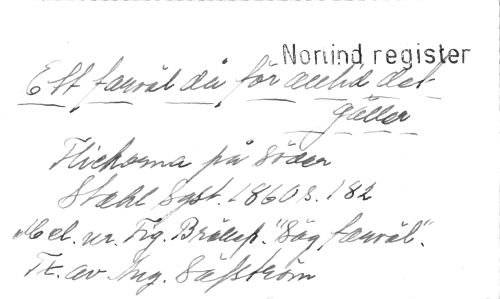 Norlind register
Ett farväl då för alltid det
gäller
Flickorna på Söder
Stahl Sgst. 1860 s. 182
Mel. ur. Fig. Bröllop. "Säg farväl".
Tx. av Aug. Säfström